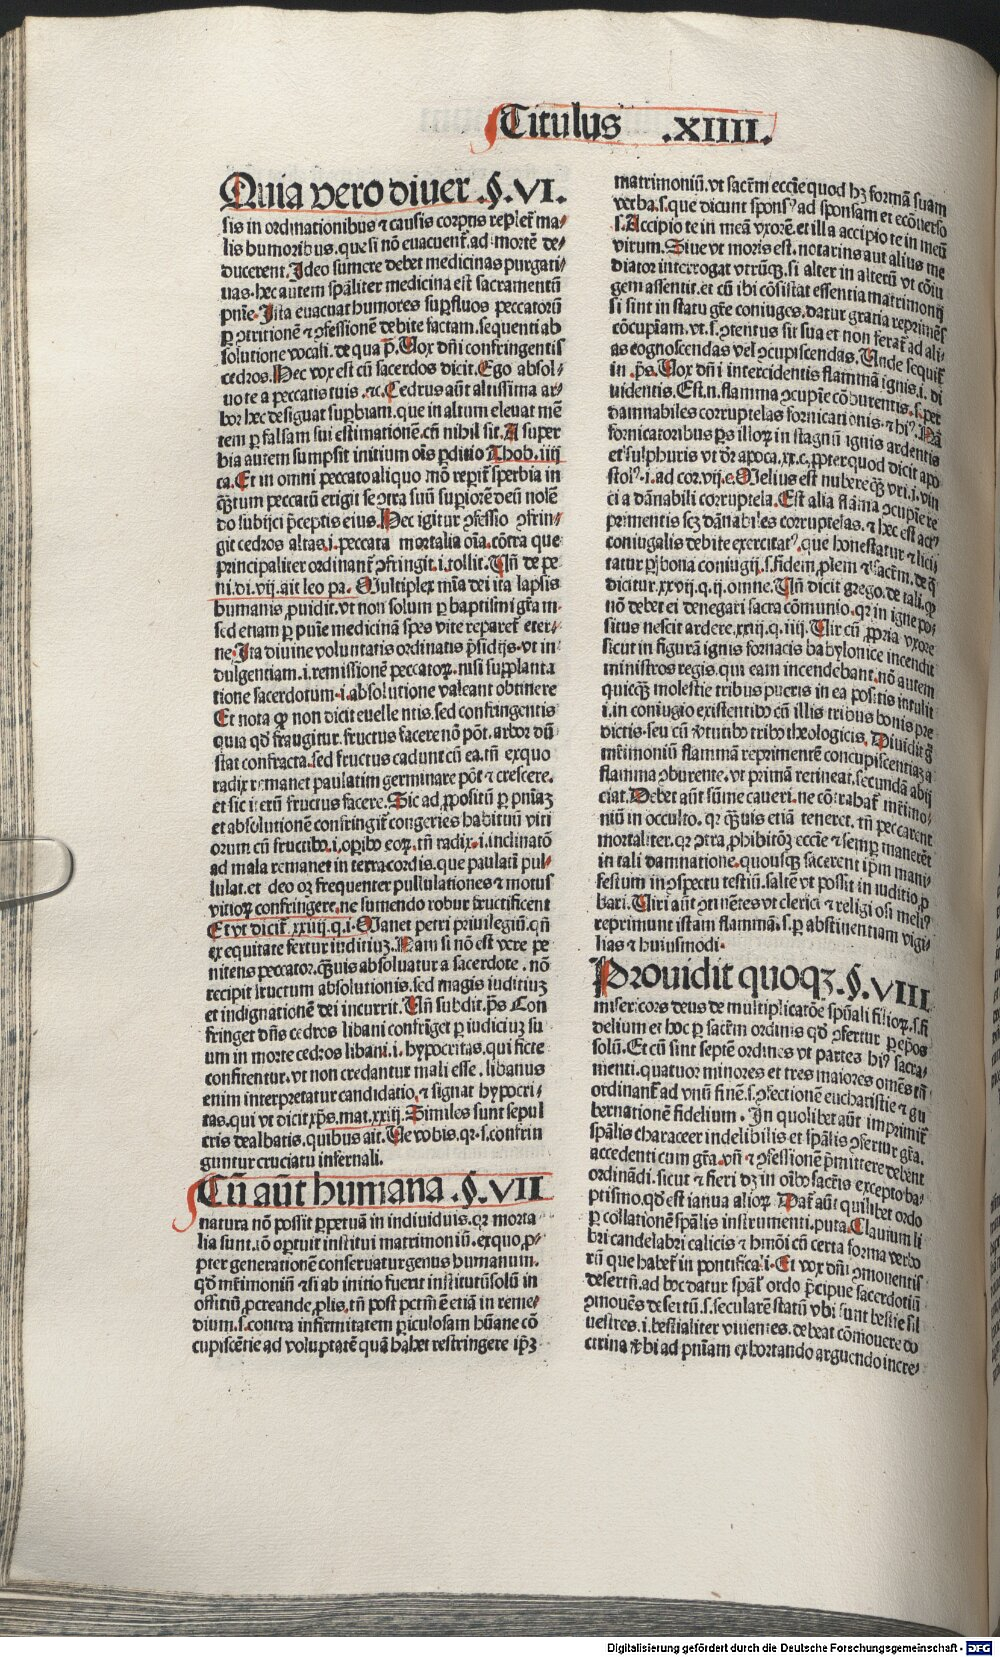 Titulus .XIIII.
Quia vero diuer .§.VI.
sis in ordinationibus ⁊ causis corpus replet᷑ ma⸗
lis humoribus. que si nō euacuent᷑. ad mortē de⸗
ducerent. Ideo sumere debet medicinas purgati⸗
uas. hec autem spāliter medicina est sacramentū
pn̄ie. Ista euacuat humores suꝑfluos peccatorū
ꝑ ↄtritionē ⁊ ↄfessionē debite factam. sequenti ab
solutione vocali. de qua p̄. Uox dn̄i confringentis
cedros. Hec vox est cū sacerdos dicit. Ego absol⸗
uo te a peccatis tuis .⁊c. Cedrus aūt altissima ar⸗
bor hec designat suꝑbiam. que in altum eleuat mē
tem ꝑ falsam sui estimationē. cū nihil sit. A super
bia autem sumpsit initium oīs ꝑditio Thob. iiij
ca. Et in omni peccato aliquo mō reperit᷑ sperbia in
qꝫtum peccatū erigit se ↄtra suū suꝑiorē deū nolē
do subijci p̄ceptis eius. Hec igitur ↄfessio ↄfrin⸗
git cedros altas. i. peccata mortalia oīa. cōtra que
principaliter ordinant᷑ ↄfringit. i. tollit. Un̄ de pe
ni. di. vij. ait leo pa. Multiplex mīa dei ita lapsis
humanis ꝓuidit. vt non solum ꝑ baptismi gr̄am
sed etiam ꝑ pn̄ie medicinā spes vite reparet᷑ eter⸗
ne. Ita diuine voluntatis ordinatis p̄sidijs. vt in
dulgentiam. i. remissionē peccatoꝝ. nisi supplanta
tione sacerdotum. i. absolutione valeant obtinere
Et nota ꝙ non dicit euellentis. sed confringentis
quia qd̄ frangitur. fructus facere nō pōt. arbor dū
stat confracta. sed fructus cadunt cū ea. tn̄ exquo
radix remanet paulatim germinare pōt ⁊ crescere.
et sic iterū fructus facere. Sic ad ꝓpositū ꝑ pn̄iaꝫ
et absolutionē confringit᷑ congeries habituū viti
orum cū fructibꝰ. i. oꝑibꝰ eoꝝ. tn̄ radix. i. inclinatō
ad mala remanet in terra cordis. que paulatī pul⸗
lulat. et ideo oꝫ frequenter pullulationes ⁊ motus
vitioꝝ confringere. ne sumendo robur fructificent
Et vt dicit᷑ xxiiij. q. i. Manet petri priuilegiū. qn̄
ex equitate fertur iuditiuꝫ. Nam si nō est vere pe
nitens peccator. qꝫuis absoluatur a sacerdote. nō
recipit fructum absolutionis. sed magis iuditiuꝫ
et indignationē dei incurrit. Un̄ subdit. p̄s Con
fringet dn̄s cedros libani confrīget ꝑ iudiciuꝫ su
um in morte cedros libani. i. hypocritas. qui ficte
confitentur. vt non credantur mali esse. libanus
enim interpretatur candidatio. ⁊ signat hypocri⸗
tas. qui vt dicit xp̄s. mat. xxiij. Similes sunt sepul
cris dealbatis. quibus ait. Ue vobis. qꝛ. s. confrin
guntur cruciatu infernali.
Cū aūt humana .§.VII
natura nō possit ꝑpetuā in indiuiduis. qꝛ morta
lia sunt. iō oꝑtuit institui matrimoniū. exquo ꝓ⸗
pter generationē conseruatur genus humanum.
qd̄ mr̄imoniū ⁊ si ab initio fuerit institutū solū in
offitiū ꝓcreande ꝓlis. tn̄ post pctm̄ ē etiā in reme⸗
dium. s. contra infirmitatem ꝑiculosam hūane cō
cupiscētie ad voluptatē quā habet restringere ip̄ꝫ
matrimoniū. vt sacr̄m eccl̄ie quod hꝫ formā suam
verba. s. que dicunt sponsꝰ ad sponsam et ecōuerso
s. Accipio te in meā vxorē. et illa accipio te in meū
virum. Siue vt moris est. notarius aut alius me
diator interrogat vtrūqꝫ. si alter in alterū vt cōiu
gem assentit. et cū ibi cōsistat essentia matrimonij
si sint in statu gr̄e coniuges. datur gratia reprimēs
cōcupīam. vt. s. ↄtentus sit sua et non ferat᷑ ad ali⸗
as cognoscendas vel ↄcupiscendas. Unde sequit᷑
in. p̄s. Uox dn̄i intercidentis flammā ignis. i. di
uidentis. Est. n. flamma ↄcupīe cōburentis. s. per
damnabiles corruptelas fornicationis. ⁊ hiꝰ. Nā
fornicatoribus ps̄ illoꝝ in stagnū ignis ardentis
et sulphuris vt dr̄ apoca. xx. c. ꝓpter quod dicit apo
stolꝰ. i. ad cor. vij. c. Melius est nubere qꝫ vri. i. vin
ci a dānabili corruptela. Est alia flāma ↄcupīe re
primentis scꝫ dānabiles corruptelas. ⁊ hec est actꝰ
coniugalis debite exercitatꝰ. que honestatur ⁊ lici
tatur ꝑ bona coniugij. s. fidem. ꝓlem ⁊ sacr̄m. de q̄
dicitur. xxvij. q. ij. omne. Un̄ dicit grego. de tali. ꝙ
nō debet ei denegari sacra cōmunio. qꝛ in igne po⸗
situs nescit ardere. xxiij. q. iiij. Uir cū ꝓpria vxore
sicut in figurā ignis fornacis babylonice incendit
ministros regis. qui eam incendebant. nō autem
quicqꝫ molestie tribus pueris in ea positis intulit
i. in coniugio existentibꝰ cū illis tribus bonis pre
dictis. seu cū v̄tutibꝰ tribꝰ theologicis. Diuidit g̊
mr̄imoniū flammā reprimentē concupiscentiaꝫ a
flamma ↄburente. vt primā retineat. secundā abij
ciat. Debet aūt sūme caueri. ne cōtrahat᷑ mr̄imo⸗
niū in occulto. qꝛ qꝫuis etiā teneret. tn̄ peccarent
mortaliter. qꝛ ↄtra ꝓhibitōꝫ eccl̄ie ⁊ semꝑ manerēt
in tali damnatione. quousqꝫ facerent ip̄m mani⸗
festum in ↄspectu testiū. saltē vt possit in iuditio ꝓ
bari. Uiri aūt ↄtinētes vt clerici ⁊ religiosi meliꝰ
reprimunt istam flammā. s. ꝑ abstinentiam vigi⸗
lias ⁊ huiusmodi.
Prouidit quoqꝫ .§.VIII
misericors deus de multiplicatōe spūali filioꝝ. s. fi
delium et hoc ꝑ sacr̄m ordinis qd̄ ↄfertur ꝑ epōs
solū. Et cū sint septē ordines vt partes hiꝰ sacra⸗
menti. quatuor minores et tres maiores omēs tn̄
ordinant᷑ ad vnū finē. s. ↄfectionē eucharistie ⁊ gu
bernationē fidelium. In quolibet aūt imprimit᷑
spālis character indelibilis et spālis ↄfertur gr̄a.
accedenti cum gr̄a. vn̄ ⁊ ↄfessionē p̄mittere debent
ordinādi. sicut ⁊ fieri dꝫ in oībꝰ sacr̄is excepto ba⸗
ptismo. qd̄ est ianua alioꝝ. Dat᷑ aūt quilibet ordo
ꝑ collationē spālis instrumenti. puta. Clauium li
bri candelabri calicis ⁊ hmōi cū certa forma verbo
rū que habet᷑ in pontificali. Et vox dn̄i ↄmouentis
desertū. ad hoc datur spāl̓ ordo p̄cipue sacerdotiū
ↄmouēs desertū. s. secularē statū vbi sunt bestie sil
uestres. i. bestialiter viuentes. debeat cōmouere do
ctrina verbi ad pn̄iam exhortando arguendo incre⸗
Digitalisierung gefördert durch die Deutsche Forschungsgemeinschaft - DFG